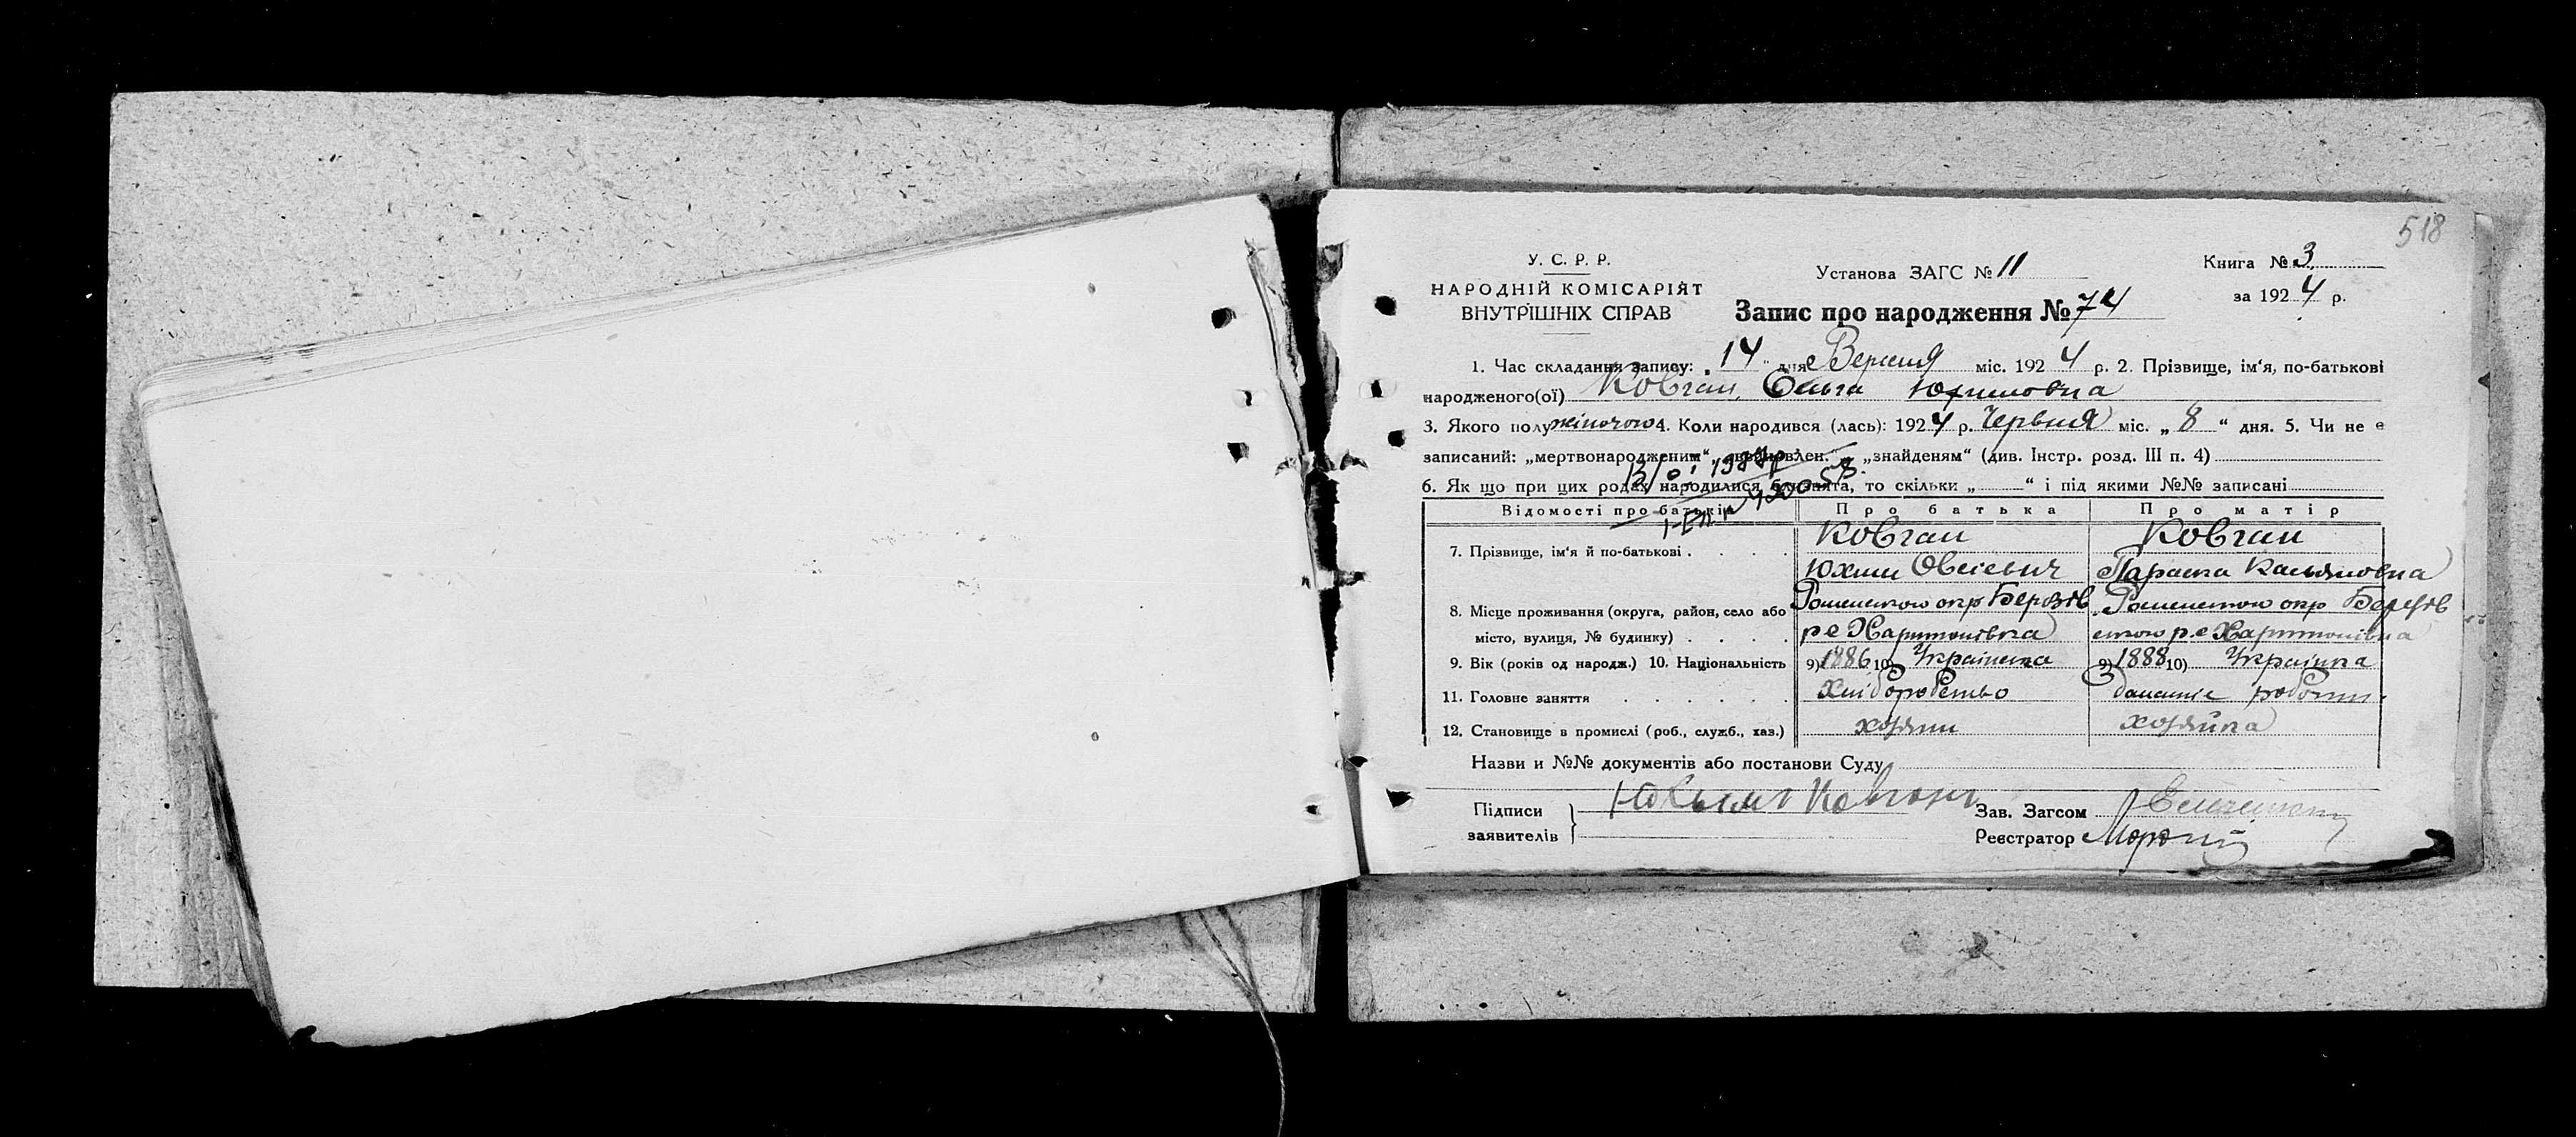 518
У. С. Р. Р.
НАРОДНІЙ КОМІСАРІЯТ
ВНУТРІШНІХ СПРАВ
Установа ЗАГС № 11
Книга № 3
за 1924 р.
Запис про народження № 74
1. Час складання запису: „14" дня Вересня міс. 1924 р. 2. Прізвище, ім'я, по-батькові
народженого(ої) Ковган Ольга Юхимовна
3. Якого полу жіночого 4. Коли народився (лась): 1924 р. Червня міс. „8" дня. 5. Чи не є
записаний: „мертвонародженим", „знайденям" (див. Інстр. розд. III п. 4)
6. Як що при цих родах народилися близнята, то скільки „ " і під якими №№ записані
Відомості про батьків Про батька Про матір
7. Прізвище, ім'я й по-батькові . . . . Ковган Ковган
Юхим Овсіевич Параска Касьяновна
8. Місце проживання (округа, район, село або Роменською окр Березів Роменською окр Березів
місто, вулиця, № будинку) . . . . р. с Харитонівка ською р. с Харитонівка
9. Вік (років од народж.) 10. Національність 9) 1886 10) Українська 9) 1888 10) Українка
11. Головне заняття . . . . . . Хліборобство домашне робот
12. Становище в промислі (роб., служб., хаз.) хозяин хозяйка
Назви и №№ документів або постанови Суду
Підписи
заявителів
Ковган
Зав. Загсом
Реєстратор